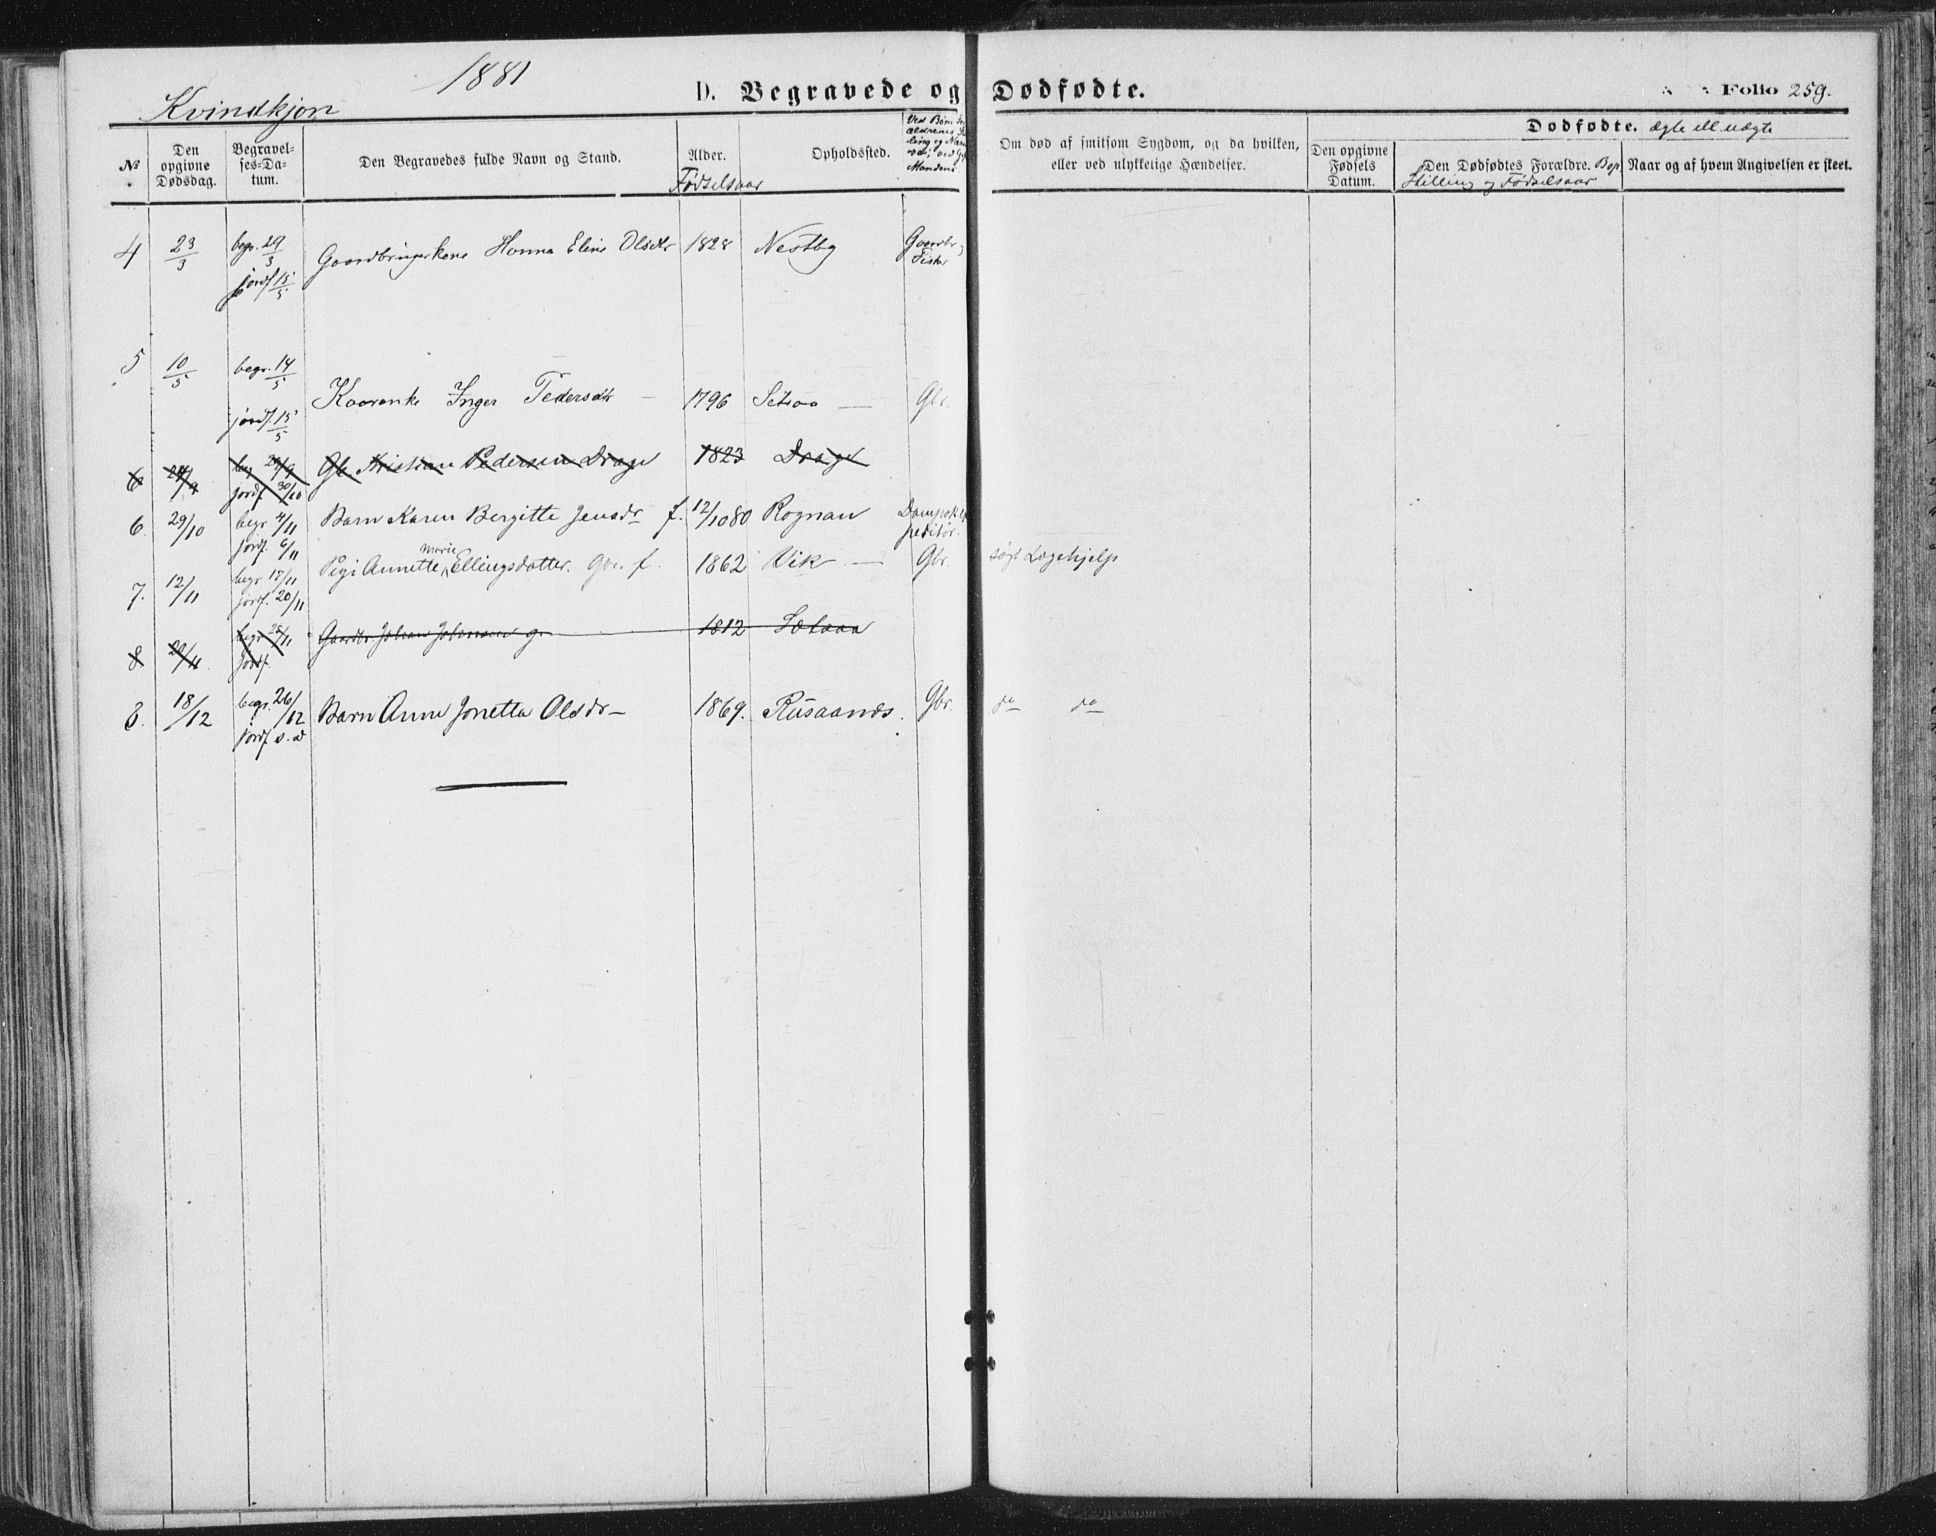 1881
Kvindkjøn
D. Begravede og Dødfødte.
Folio 259.
№
Den opgivne Dødsdag.
Begravelses-Datum.
Den Begravedes fulde Navn og Stand.
Alder. Fødselsaar
Opholdssted.
Ved Børn
Mandens
Om død af smitsom Sygdom, og da hvilken, eller ved ulykkelige Hændelser.
Dødfødte. ægte ell. uægte
Den opgivne Fødsels Datum.
Den Dødfødtes Forældre. Bop. Stilling og Fødselsaar
Naar og af hvem Angivelsen er skeet.
4 23/3 begr. 29/3 Gaardbrugerkone Hanna Eline Olsdtr 1828 Nestby Gaardbr. Fisker
jordf 15/5
5 10/5 begr. 14/5
Kaarenke Inger Pedersdtr 1796 Setsaa — Gbr.
jordf. 15/5
6 24/9 beg 28/9 Gb Kristian Pedersen Drage 1823 Drage
jordf 30/10
6. 29/10 begr 4/11 Barn Karen Bergitte Jensdr f. 12/10 80 Rognan Dampskexpeditør.
jordf. 6/11
7. 12/11 begr 17/11 Pige Annette Marie Ellingsdatter. Gbr. f. 1862 Vik — Gbr. søgt Lægehjelp
jordf. 20/11
8 22/11 begr 28/11 Gaardbr Johan Johansen g. 1812 Sætsaa
jordf.
8. 18/12 begr. 26/12 Barn Anne Jonetta Olsdr — 1869. Rusaanes. Gbr. do do
jordf s. d